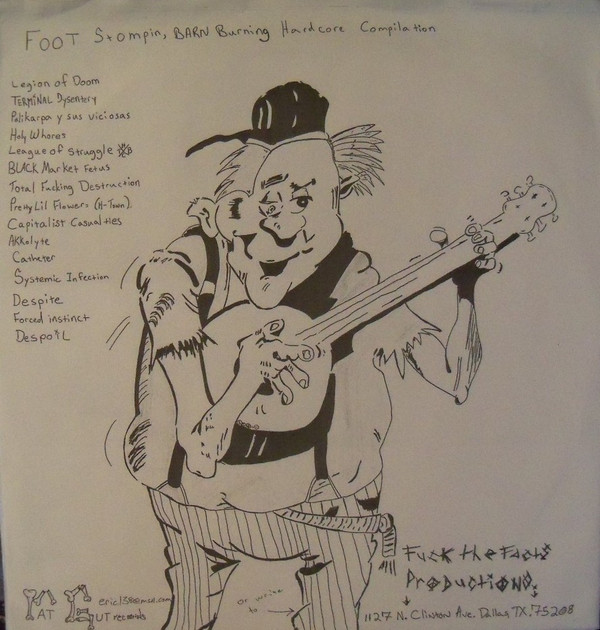 FOOT Stompin, BARN Burning Hardcore Compilation
Legion of Doom
TERMINAL Dysentery
Polikarpa y sus viciosas
Holy Whores
League of Struggle
BLACK Market Fetus
Total Fucking Destruction
Pretty Lil Flowers (H-Town)
Capitalist Casualties
AKKolyte
Catheter
Systemic Infection
Despite
Forced instinct
Despoil
Fuck the Facts
Productions
YAT GUT records
or write to
1127 N. Clinton Ave. Dallas, TX. 75208